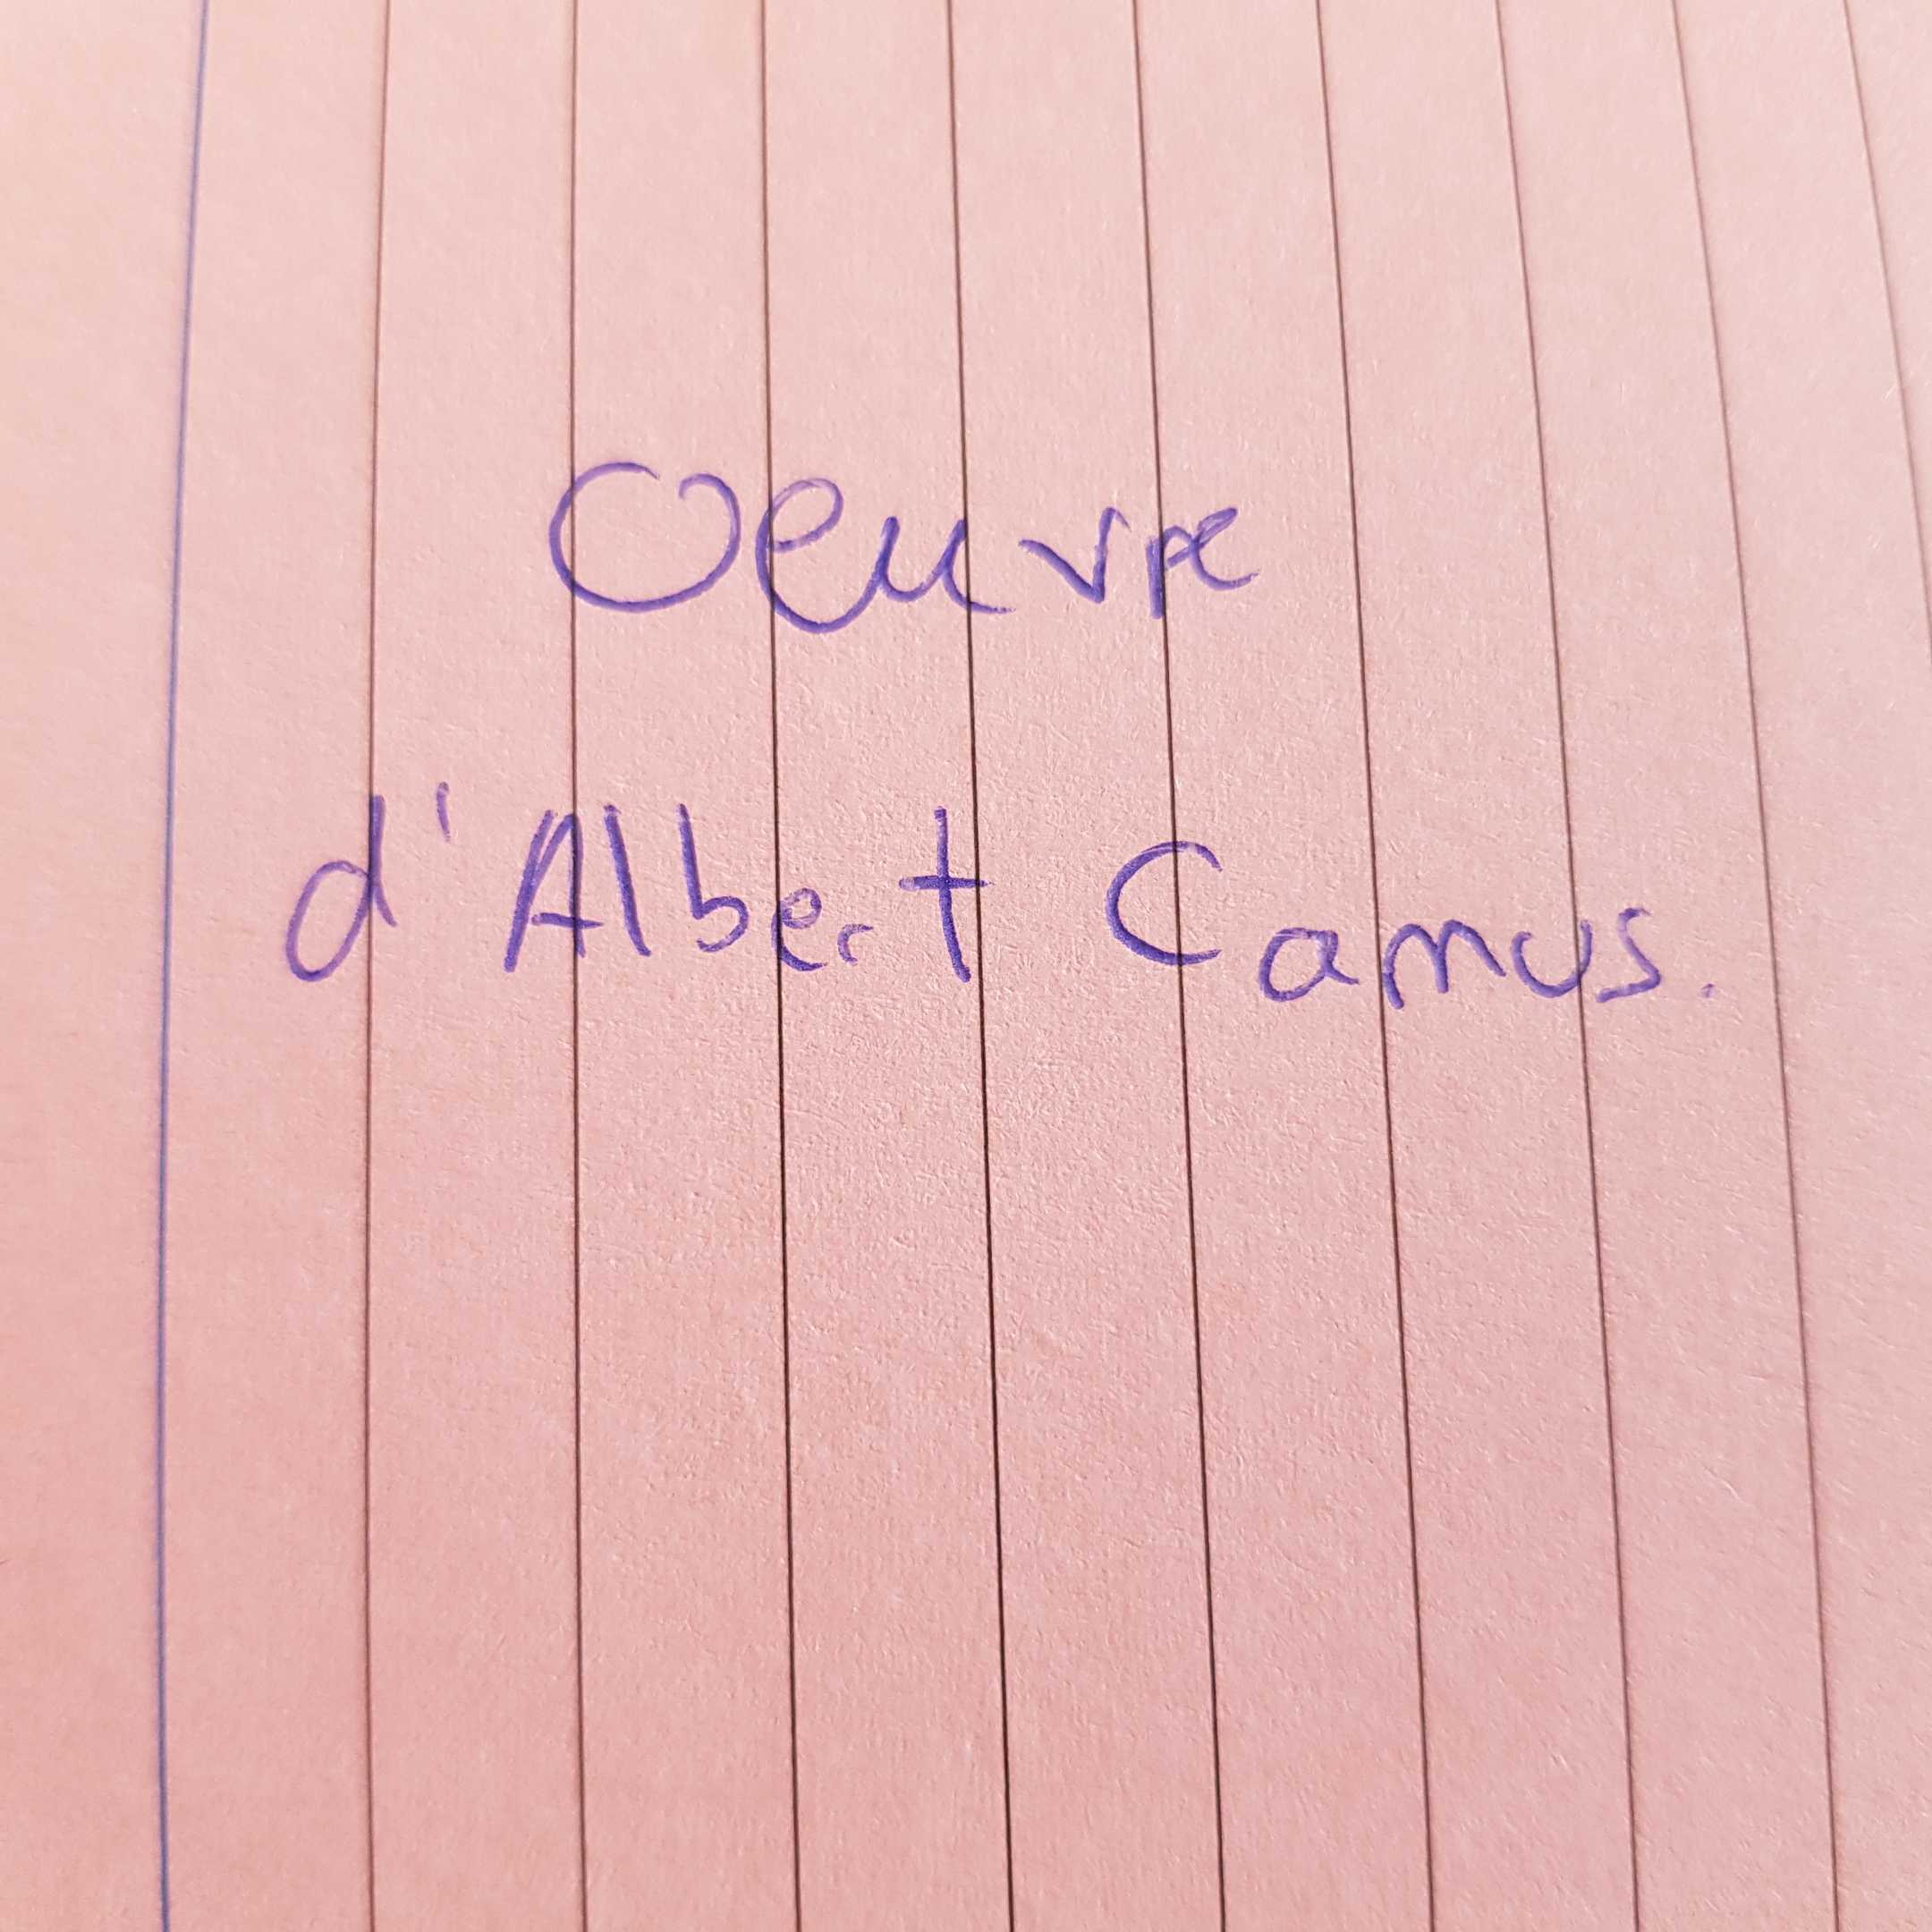 Oeuvre
d'Albert Camus.